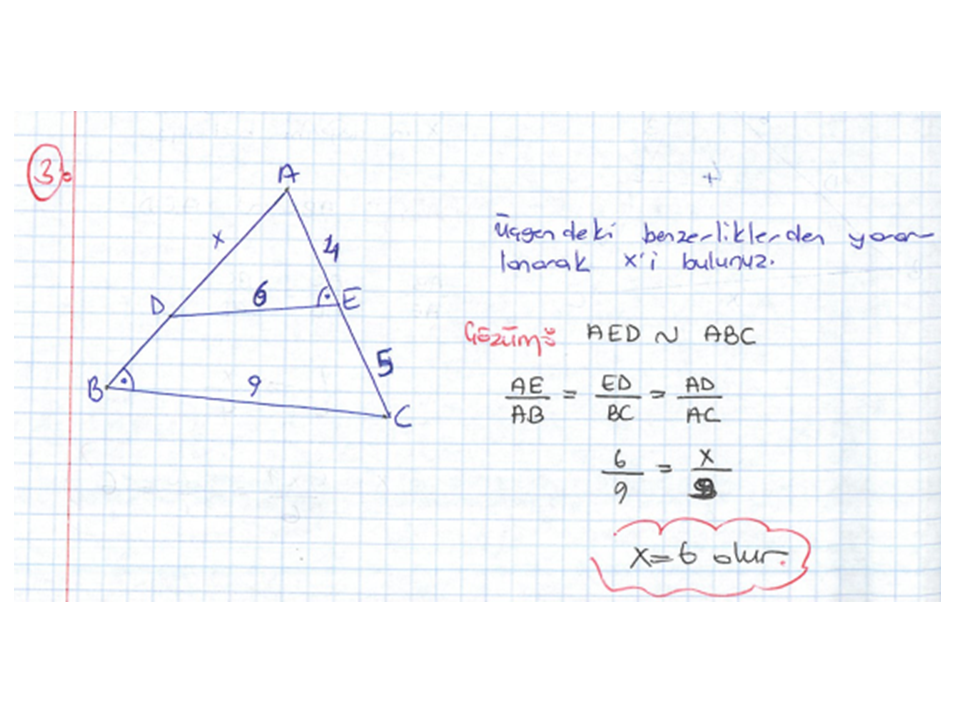 3.
A
x
4
D
6
E
5
B
9
C
Üçgendeki benzerliklerden yarar-
lanarak x'i bulunuz.
Çözüm:
AED ~ ABC
AE/AB = ED/BC = AD/AC
6/9 = x/9
x=6 olur.